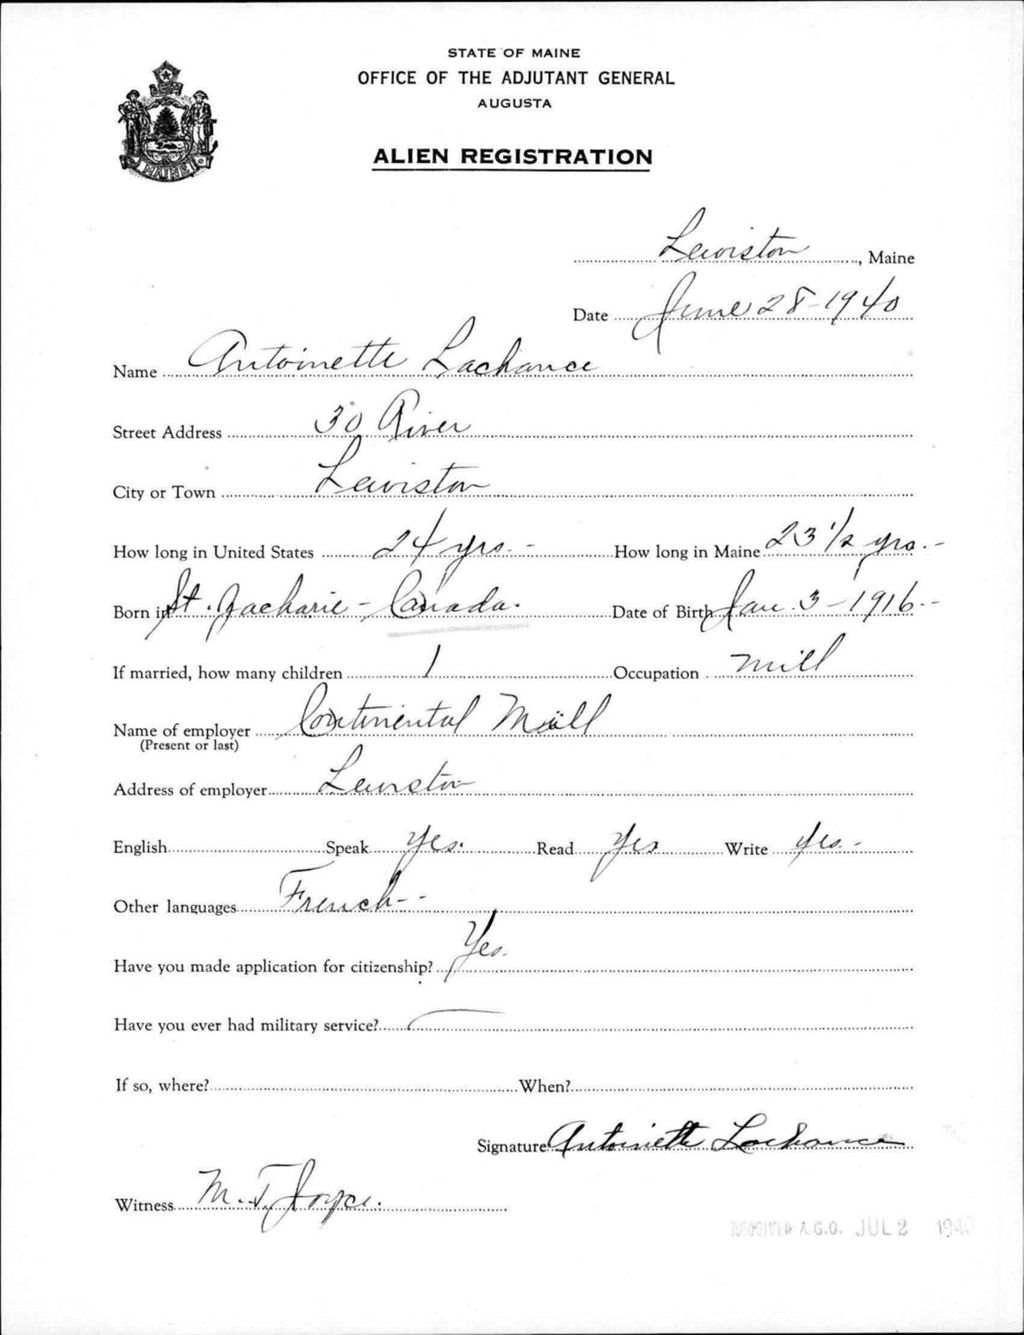 STATE OF MAINE
OFFICE OF THE ADJUTANT GENERAL
AUGUSTA
MAINE
ALIEN REGISTRATION
Lewiston, Maine
Date June 28-1940
Name Antoinette Lachance
Street Address 30 River
City or Town Lewiston
How long in United States 24 yrs.- How long in Maine 23 1/2 yrs.-
Born in St. Zacharie - Canada. Date of Birth Jan. 3-1916-
If married, how many children 1 Occupation mill
Name of employer Continental Mill
(Present or last)
Address of employer Lewiston
English Speak Yes. Read Yes Write Yes.-
Other languages French--
Have you made application for citizenship? Yes.
Have you ever had military service? —
If so, where? When?
Signature Antoinette Lachance
Witness M. T. Joyce.
RECEIVED A.G.O. JUL 2 1940